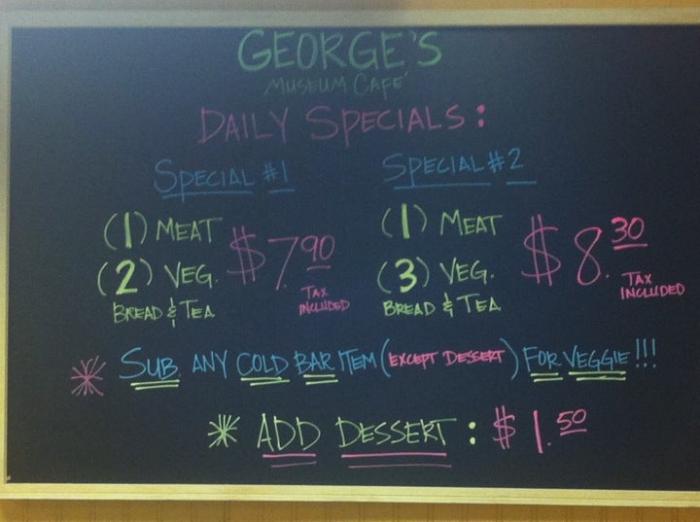 GEORGE'S
MUSEUM CAFE'
DAILY SPECIALS:
SPECIAL #1
(1) MEAT
(2) VEG.
BREAD & TEA
$7.90
TAX
INCLUDED
SPECIAL #2
(1) MEAT
(3) VEG.
BREAD & TEA
$8.30
TAX
INCLUDED
* SUB ANY COLD BAR ITEM (EXCEPT DESSERT) FOR VEGGIE!!!
* ADD DESSERT: $1.50